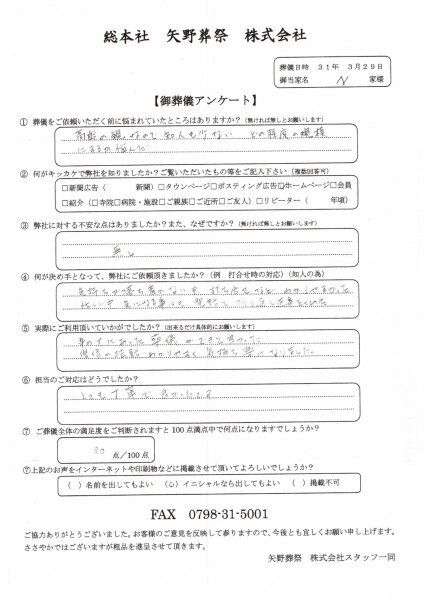 総本社　矢野葬祭　株式会社
葬儀日時　31年　3月29日
御当家名　N　家様
【御葬儀アンケート】
① 葬儀をご依頼いただく前に悩まれていたところはありますか？（無ければ無しとお願いします）
高齢の親なので知人も少ない　どの程度の規模
にするか悩んだ
② 何がキッカケで弊社を知りましたか？ご覧いただいたもの等をご記入下さい（複数回答可）
□新聞広告（　　　新聞）□タウンページ□ポスティング広告□ホームページ□会員
□紹介（□寺院□病院・施設□ご親族□ご近所□ご友人）□リピーター（　　　年頃）
③ 弊社に対する不安な点はありましたか？また、なぜですか？（無ければ無しとお願いします）
無し
④ 何が決め手となって、弊社にご依頼頂きましたか？（例　打合せ時の対応）（知人の為）
⑤ 実際にご利用頂いていかがでしたか？（出来るだけ具体的にお願いします）
⑥ 担当のご対応はどうでしたか？
とても丁寧で良かったです
⑦ ご葬儀全体の満足度をご判断されますと100点満点中で何点になりますでしょうか？
90　点/100点
⑦上記のお声をインターネットや印刷物などに掲載させて頂いてよろしいでしょうか？
（　）名前を出してもよい　（○）イニシャルなら出してもよい　（　）掲載不可
FAX　0798-31-5001
ご協力ありがとうございました。お客様のご意見を反映して参りますので、今後とも宜しくお願い申し上げます。
ささやかではございますが粗品を進呈させて頂きます。
矢野葬祭　株式会社スタッフ一同